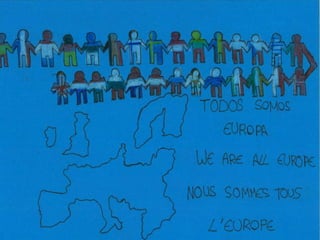 TODOS SOMOS
EUROPA
WE ARE ALL EUROPE
NOUS SOMMES TOUS
L'EUROPE